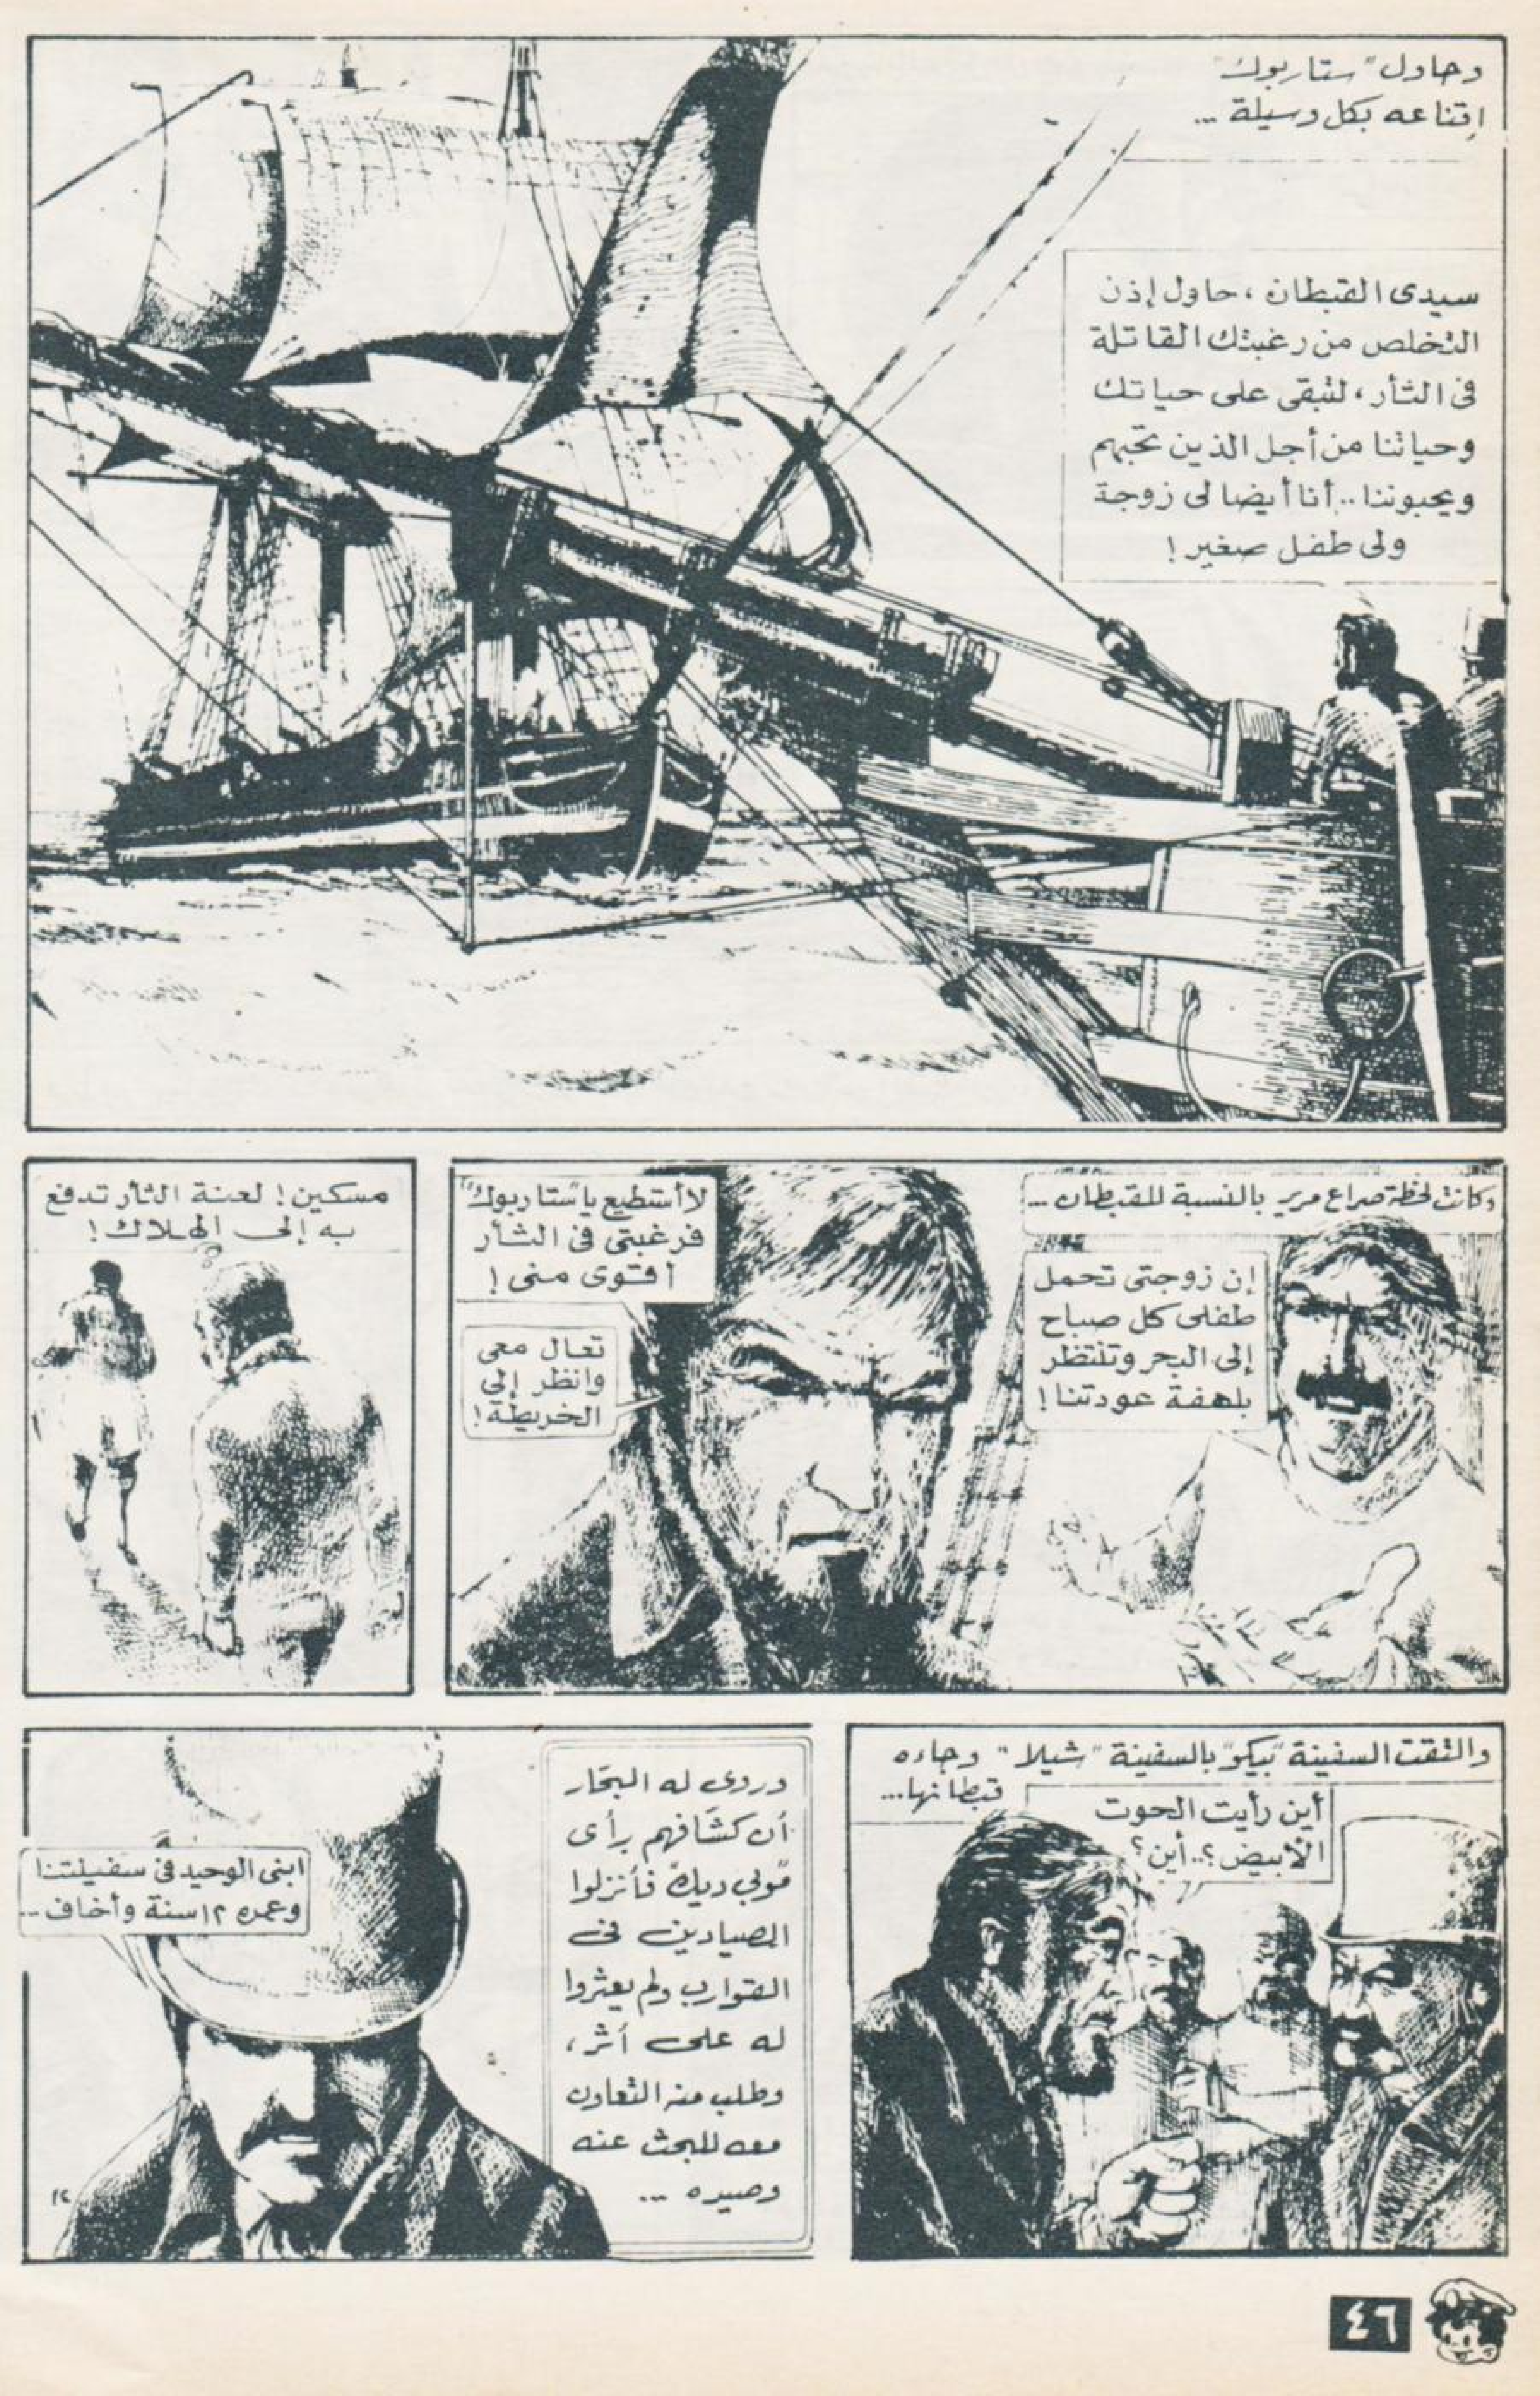 وحاول "ستاربوك"
إقناعه بكل وسيلة ...
سيدى القبطان، حاول إذن
التخلص من رغبتك القاتلة
فى الثأر، لتبقى على حياتك
وحياتنا من أجل الذين نحبهم
ويحبوننا.. أنا أيضا لى زوجة
ولى طفل صغير!
وكانت لحظة صراع مرير بالنسبة للقبطان ...
إن زوجتى تحمل
طفلى كل صباح
إلى البحر وتنتظر
بلهفة عودتنا!
لا أستطيع يا "ستاربوك"
فرغبتى فى الثأر
أقوى منى!
تعال معى
وانظر إلى
الخريطة!
مسكين! لعنة الثأر تدفع
به إلى الهلاك!
والتقت السفينة "بيكو" بالسفينة "شيلا" وجاءه
قبطانها...
أين رأيت الحوت
الأبيض؟.. أين؟
وروى له البحّار
أن كشّافهم رأى
"موبى ديك" فأنزلوا
الصيادين فى
القوارب ولم يعثروا
له على أثر،
وطلب منه التعاون
معه للبحث عنه
وصيده ...
ابنى الوحيد فى سفينتنا
وعمره ١٢ سنة وأخاف...
١٢
٤٦